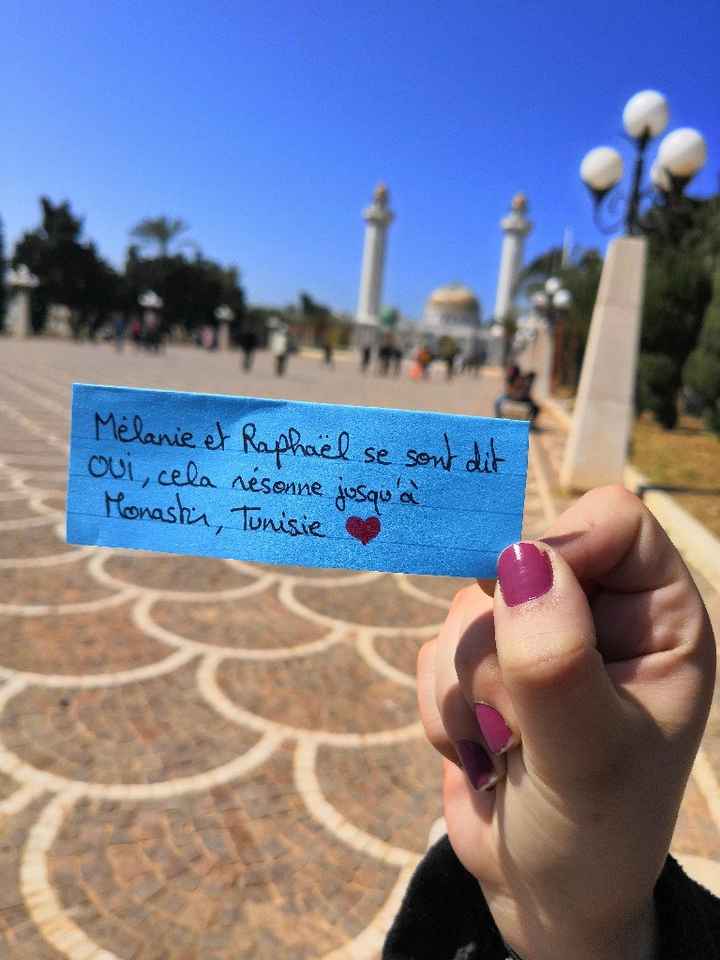 Mélanie et Raphaël se sont dit
OUI, cela résonne jusqu'à
Monastir, Tunisie ♥